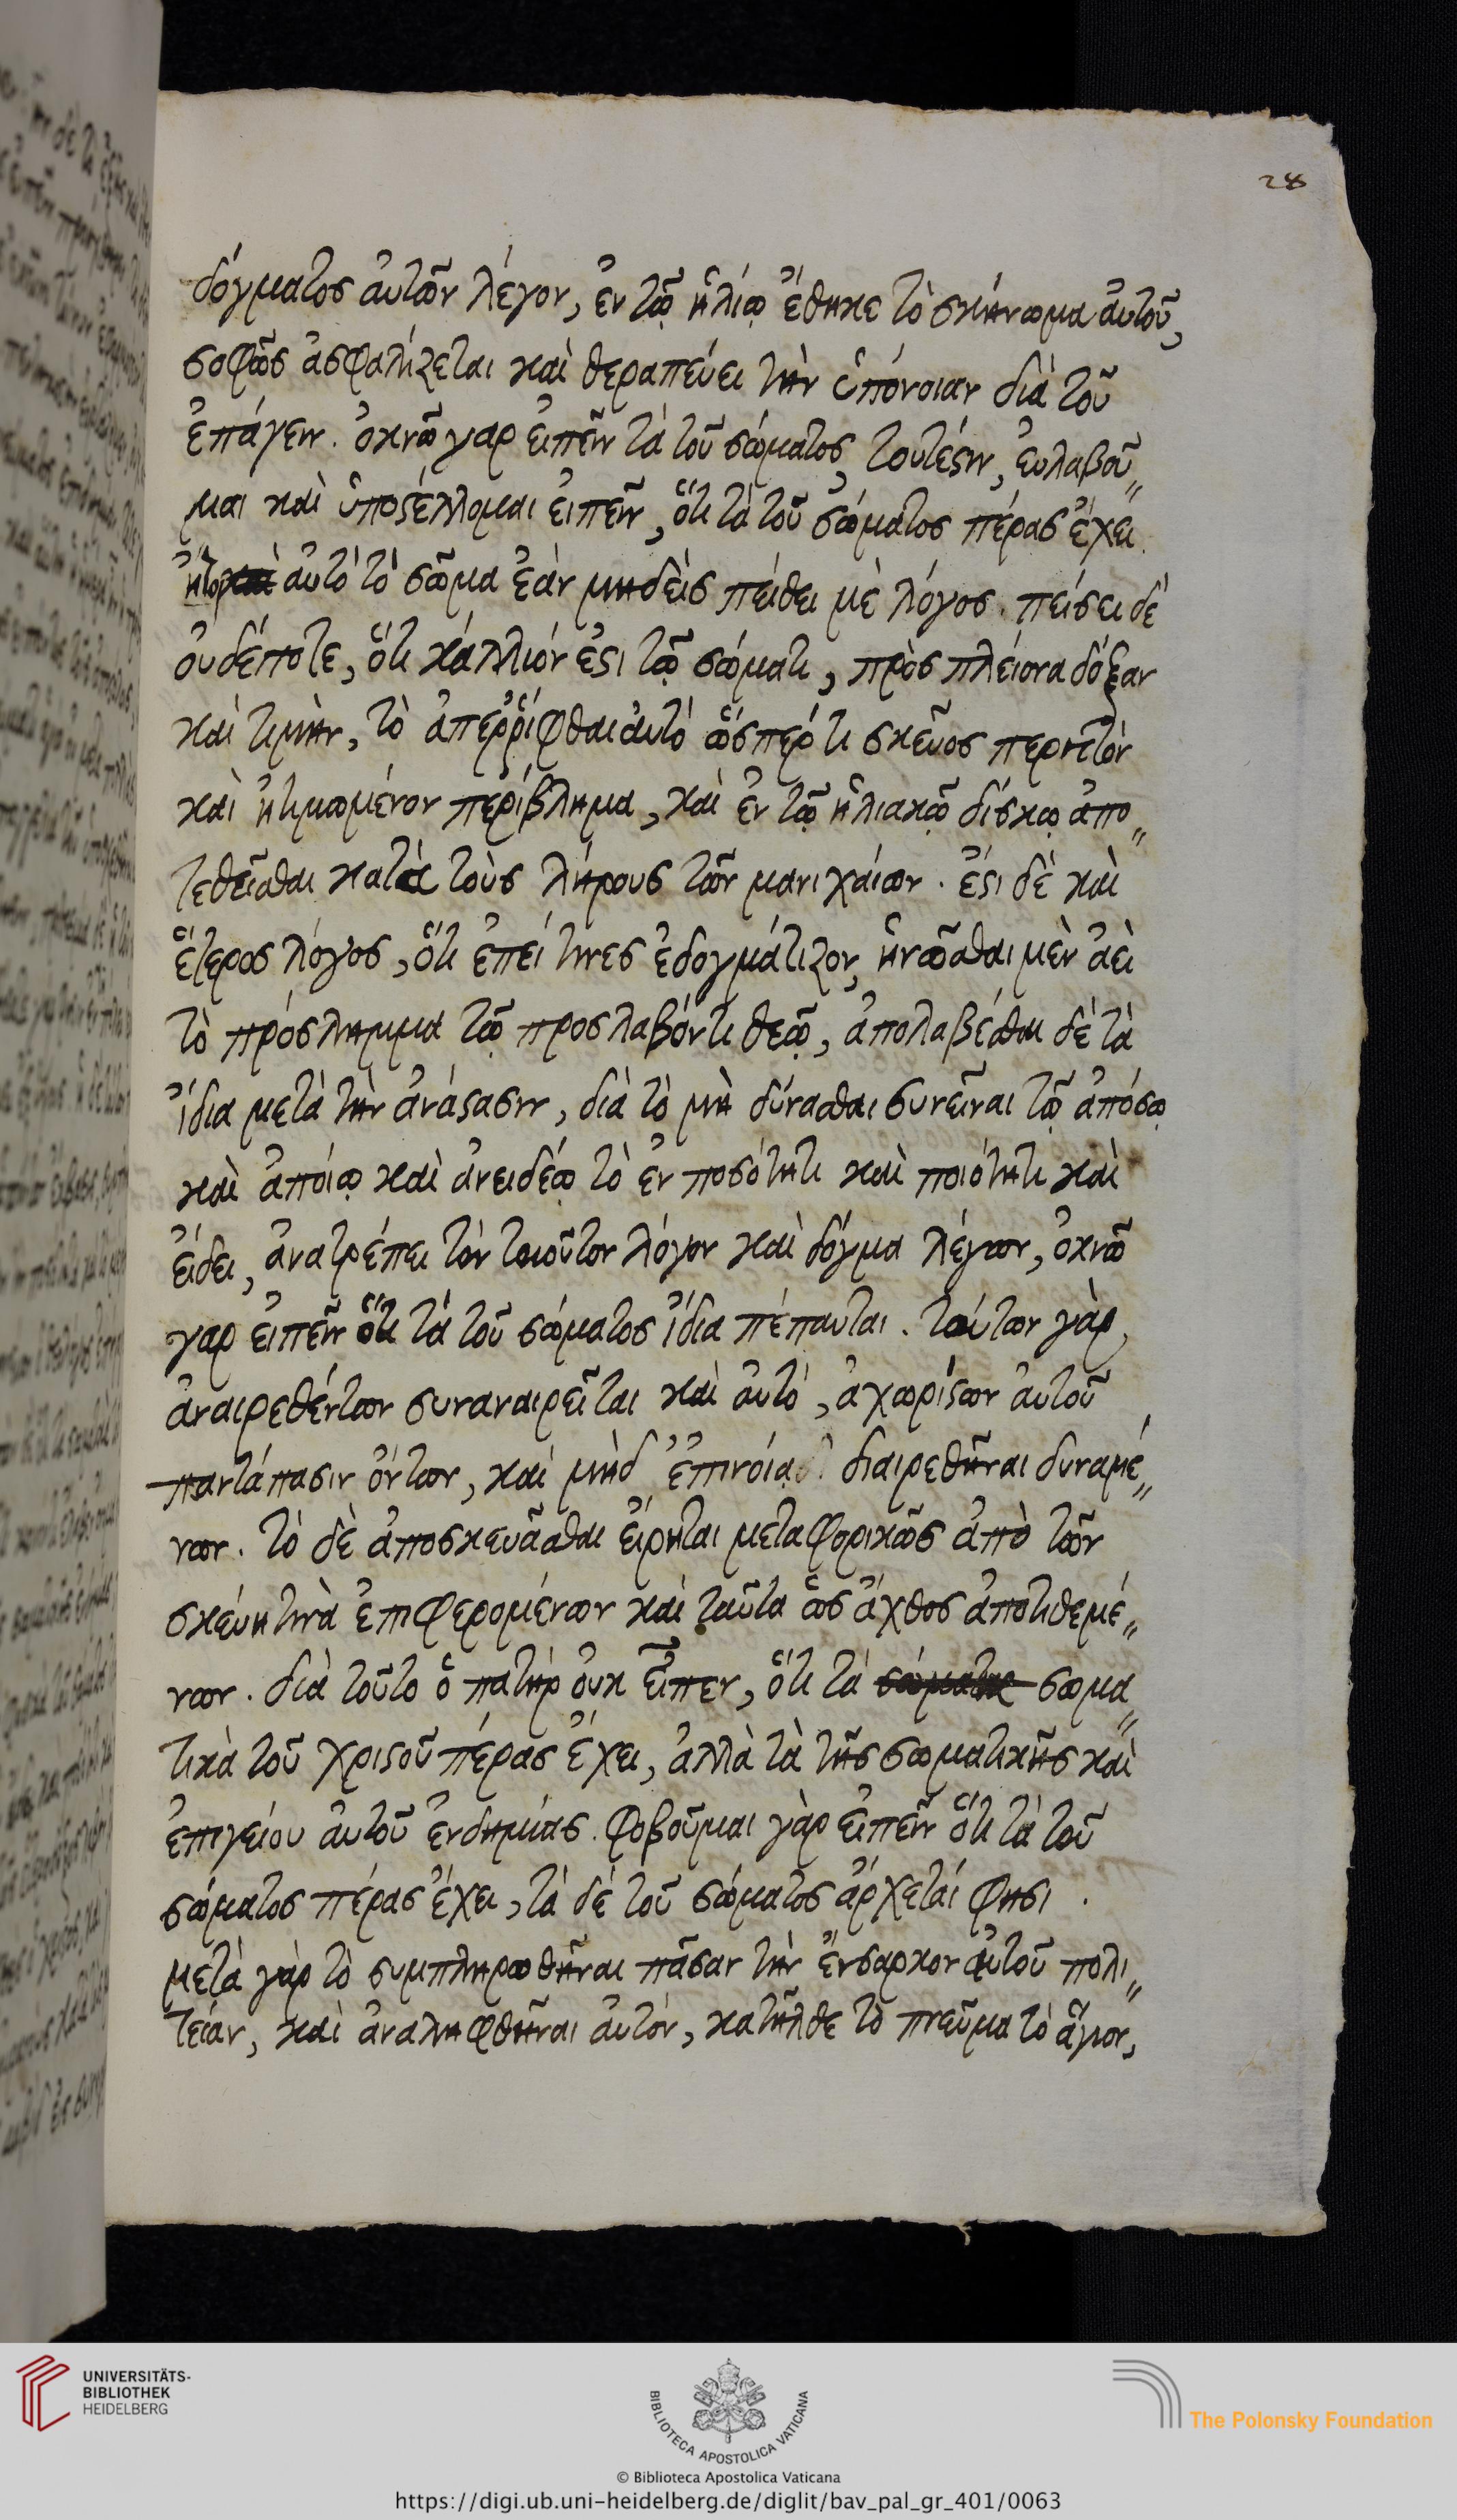 28
δόγματος ἀυτῶν λέγον, ἐν τῷ ἡλίῳ ἔθηκε τὸ σκήνωμα ἀυτοῦ,
σοφῶς ἀσφαλίζεται καὶ θεραπεύει τὴν ὑπόνοιαν διὰ τοῦ
ἐπάγειν. ὀκνῶ γαρ ἐιπεῖν τὰ τοῦ σώματος, τουτέστιν, ἐυλαβοῦ„
μαι καὶ ὑποστέλλομαι ἐιπεῖν, ὅτι τὰ τοῦ σώματος πέρας ἔχει.
ἀυτὸ τὸ σῶμα ἐὰν μηδεὶς πείθει μὲ λόγος. πείσει δὲ
ὀυδέποτε, ὅτι κάλλιόν ἐστι τῷ σώματι, πρὸς πλείονα δόξαν
καὶ τιμὴν, τὸ ἀπεῤῥίφθαι ἀυτὸ ὥσπερ τι σκεῦος περιττὸν
καὶ ἠτιμωμένον περίβλημα, καὶ ἐν τῷ ἡλιακῷ δίσκῳ ἀπο„
τεθεῖσθαι κατὰ τοὺς λήρους τῶν μανιχαίων. ἔστι δὲ καὶ
ἕτερος λόγος, ὅτι ἐπεί τινες ἐδογμάτιζον, ἡνῶσθαι μὲν ἀεὶ
τὸ πρόσλημμα τῷ προσλαβόντι θεῷ, ἀπολαβέσθαι δὲ τὰ
ἴδια μετὰ τὴν ἀνάστασιν, διὰ τὸ μὴ δύνασθαι συνεῖναι τῷ ἀπόσῳ
καὶ ἀποίῳ καὶ ἀνειδέῳ τὸ ἐν ποσότητι καὶ ποιότητι καὶ
ἔιδει, ἀνατρέπει τὸν τοιοῦτον λόγον καὶ δόγμα λέγων, ὀκνῶ
γαρ ἐιπεῖν ὅτι τὰ τοῦ σώματος ἴδια πέπαυται. τούτων γὰρ
ἀναιρεθέντων συναναιρεῖται καὶ ἀυτὸ, ἀχωρίστων ἀυτοῦ
παντάπασιν ὄντων, καὶ μὴδ ἐπινοίᾳ διαιρεθῆναι δυναμέ„
νων. τὸ δὲ ἀποσκευᾶσθαι ἔιρηται μεταφορικῶς ἀπὸ τῶν
σκεύη τινὰ ἐπιφερομένων καὶ ταῦτα ὡς ἄχθος ἀποτιθεμέ„
νων. διὰ τοῦτο ὁ πατὴρ ὀυκ εἶπεν, ὅτι τὰ σωμα„
τικὰ τοῦ χριστοῦ πέρας ἔχει, ἀλλὰ τὰ τῆς σωματικῆς καὶ
ἐπιγείου ἀυτοῦ ἐνδημίας. φοβοῦμαι γὰρ ἐιπεῖν ὅτι τὰ τοῦ
σώματος πέρας ἔχει, τὰ δὲ τοῦ σώματος ἄρχεταί φησι.
μετὰ γὰρ τὸ συμπληρωθῆναι πᾶσαν τὴν ἔνσαρκον ἀυτοῦ πολι„
τείαν, καὶ ἀναληφθῆναι ἀυτὸν, κατῆλθε τὸ πνεῦμα τὸ ἅγιον,
UNIVERSITÄTS-
BIBLIOTHEK
HEIDELBERG
BIBLIOTECA APOSTOLICA VATICANA
The Polonsky Foundation
© Biblioteca Apostolica Vaticana
https://digi.ub.uni-heidelberg.de/diglit/bav_pal_gr_401/0063